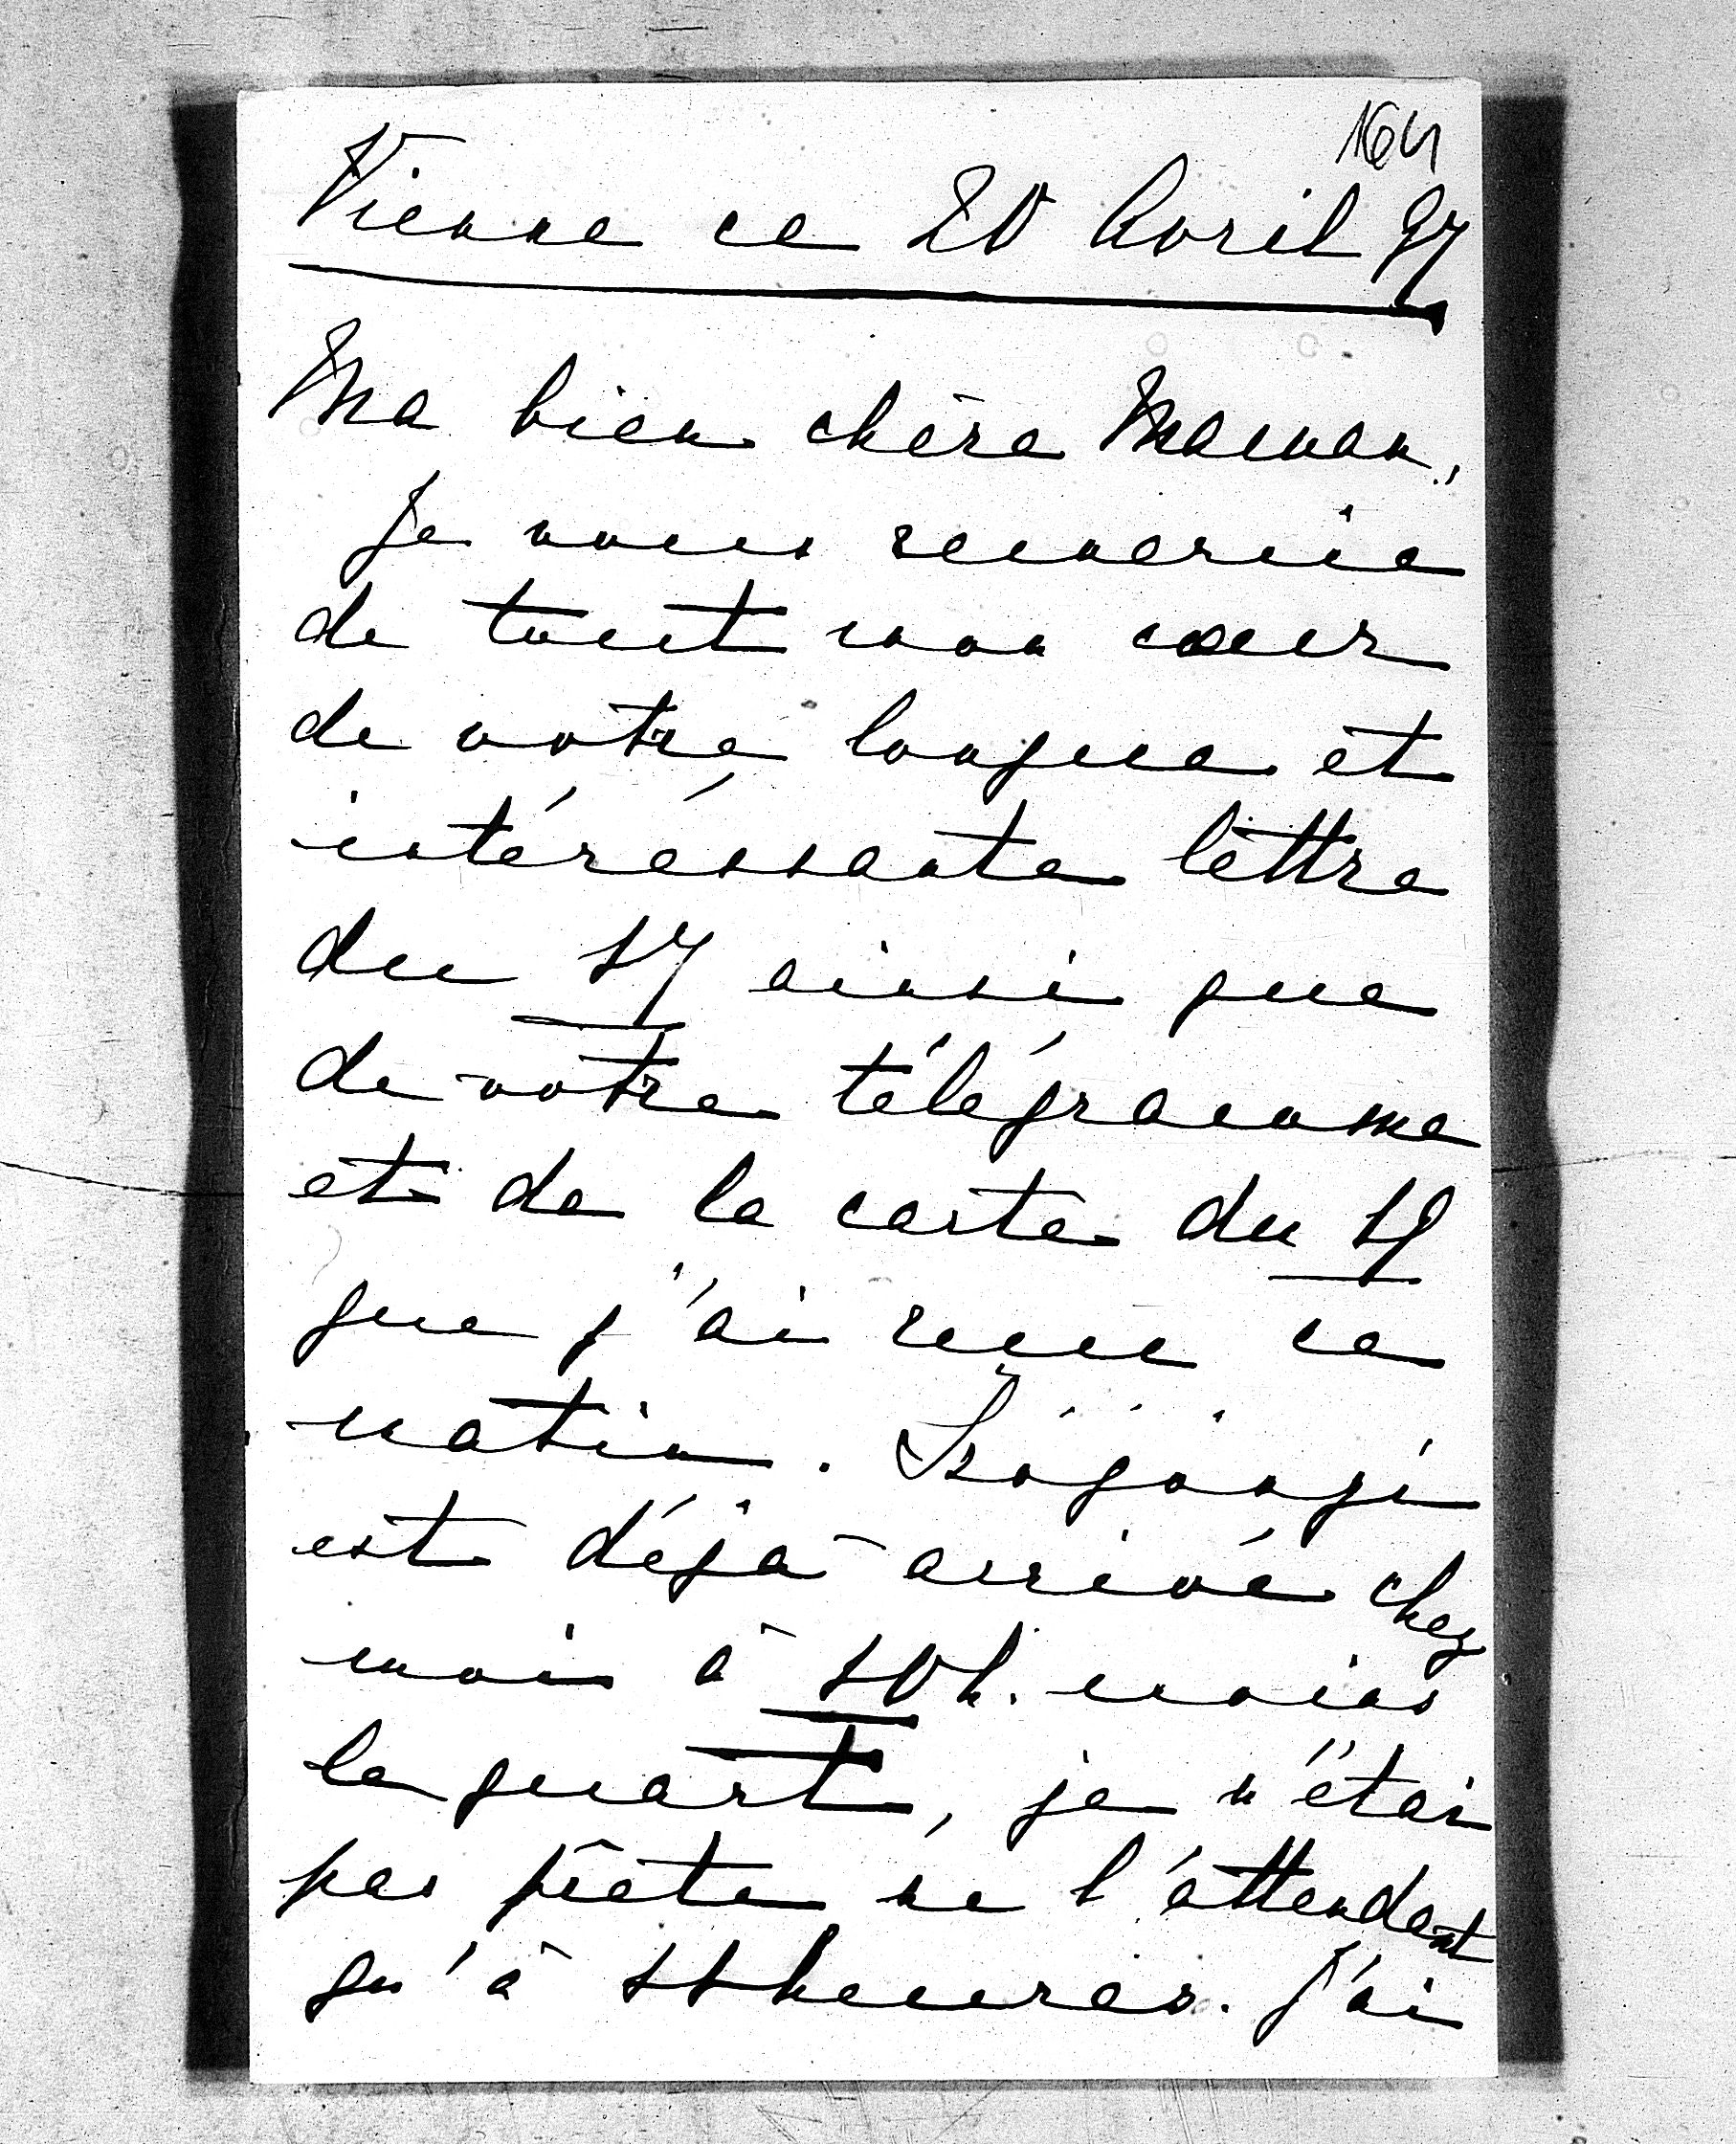 164
Vienne ce 20 Avril 97
Ma bien chère Maman,
Je vous remercie
de tout mon cœur
de votre longue et
intéréssante lettre
du 17 ainsi que
de votre télégramme
et de la carte du
que j'ai reçue ce
matin. Szögyngi
est déja arrivé chez
moi à 10 h. moins
le quart, je n'étais
pas prête ne l'attendant
qu'à 11 heures. J'ai